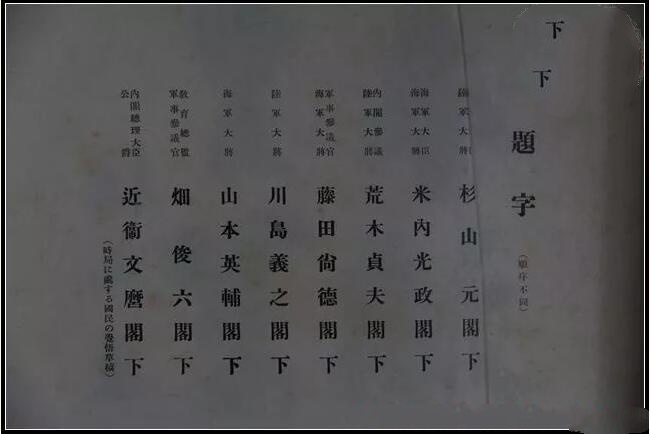 下
下
題字
(順序不同)
陸軍大
杉山元閣下
海軍大臣
海軍大將
米內光政閣下
內閣參議
陸軍大將
荒木貞夫閣下
軍事參議官
海軍大將
藤田尙德閣下
陸軍大將
川島義之閣下
海軍大將
山本英輔閣下
敎育總監
軍事參議官
畑俊六閣下
內閣總理大臣
公爵
近衞文麿閣下
(時局に處する國民の覺悟草稿)